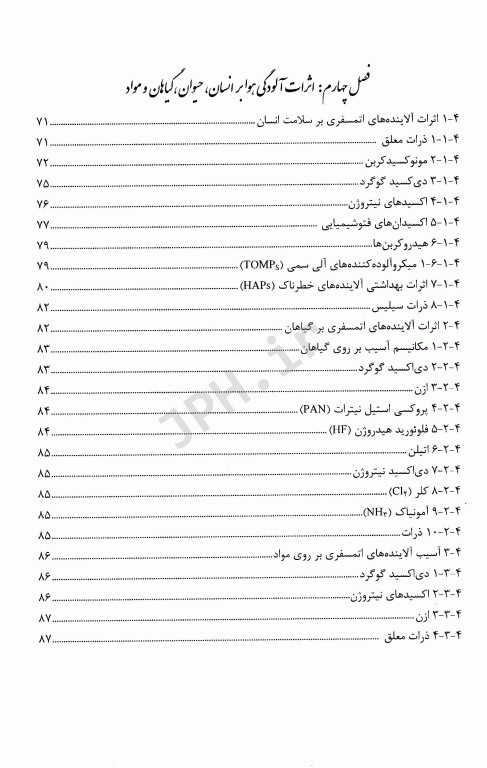 فصل چهارم: اثرات آلودگی هوا بر انسان، حیوان، گیاهان و مواد
۴-۱ اثرات آلاینده‌های اتمسفری بر سلامت انسان ........ ۷۱
۴-۱-۱ ذرات معلق ........ ۷۱
۴-۱-۲ مونوکسیدکربن ........ ۷۲
۴-۱-۳ دی‌کسید گوگرد ........ ۷۵
۴-۱-۴ اکسیدهای نیتروژن ........ ۷۶
۴-۱-۵ اکسیدان‌های فتوشیمیایی ........ ۷۷
۴-۱-۶ هیدروکربن‌ها ........ ۷۹
۴-۱-۶-۱ میکروآلوده‌کننده‌های آلی سمی (TOMPs) ........ ۷۹
۴-۱-۷ اثرات بهداشتی آلاینده‌های خطرناک (HAPs) ........ ۸۰
۴-۱-۸ ذرات سیلیس ........ ۸۲
۴-۲ اثرات آلاینده‌های اتمسفری بر گیاهان ........ ۸۲
۴-۲-۱ مکانیسم آسیب بر روی گیاهان ........ ۸۳
۴-۲-۲ دی‌اکسید گوگرد ........ ۸۳
۴-۲-۳ ازن ........ ۸۴
۴-۲-۴ پروکسی استیل نیترات (PAN) ........ ۸۴
۴-۲-۵ فلوئورید هیدروژن (HF) ........ ۸۴
۴-۲-۶ اتیلن ........ ۸۵
۴-۲-۷ دی‌اکسید نیتروژن ........ ۸۵
۴-۲-۸ کلر (Cl۲) ........ ۸۵
۴-۲-۹ آمونیاک (NH۳) ........ ۸۵
۴-۲-۱۰ ذرات ........ ۸۵
۴-۳ آسیب آلاینده‌های اتمسفری بر روی مواد ........ ۸۶
۴-۳-۱ دی‌اکسید گوگرد ........ ۸۶
۴-۳-۲ اکسیدهای نیتروژن ........ ۸۶
۴-۳-۳ ازن ........ ۸۷
۴-۳-۴ ذرات معلق ........ ۸۷
JPH.ir